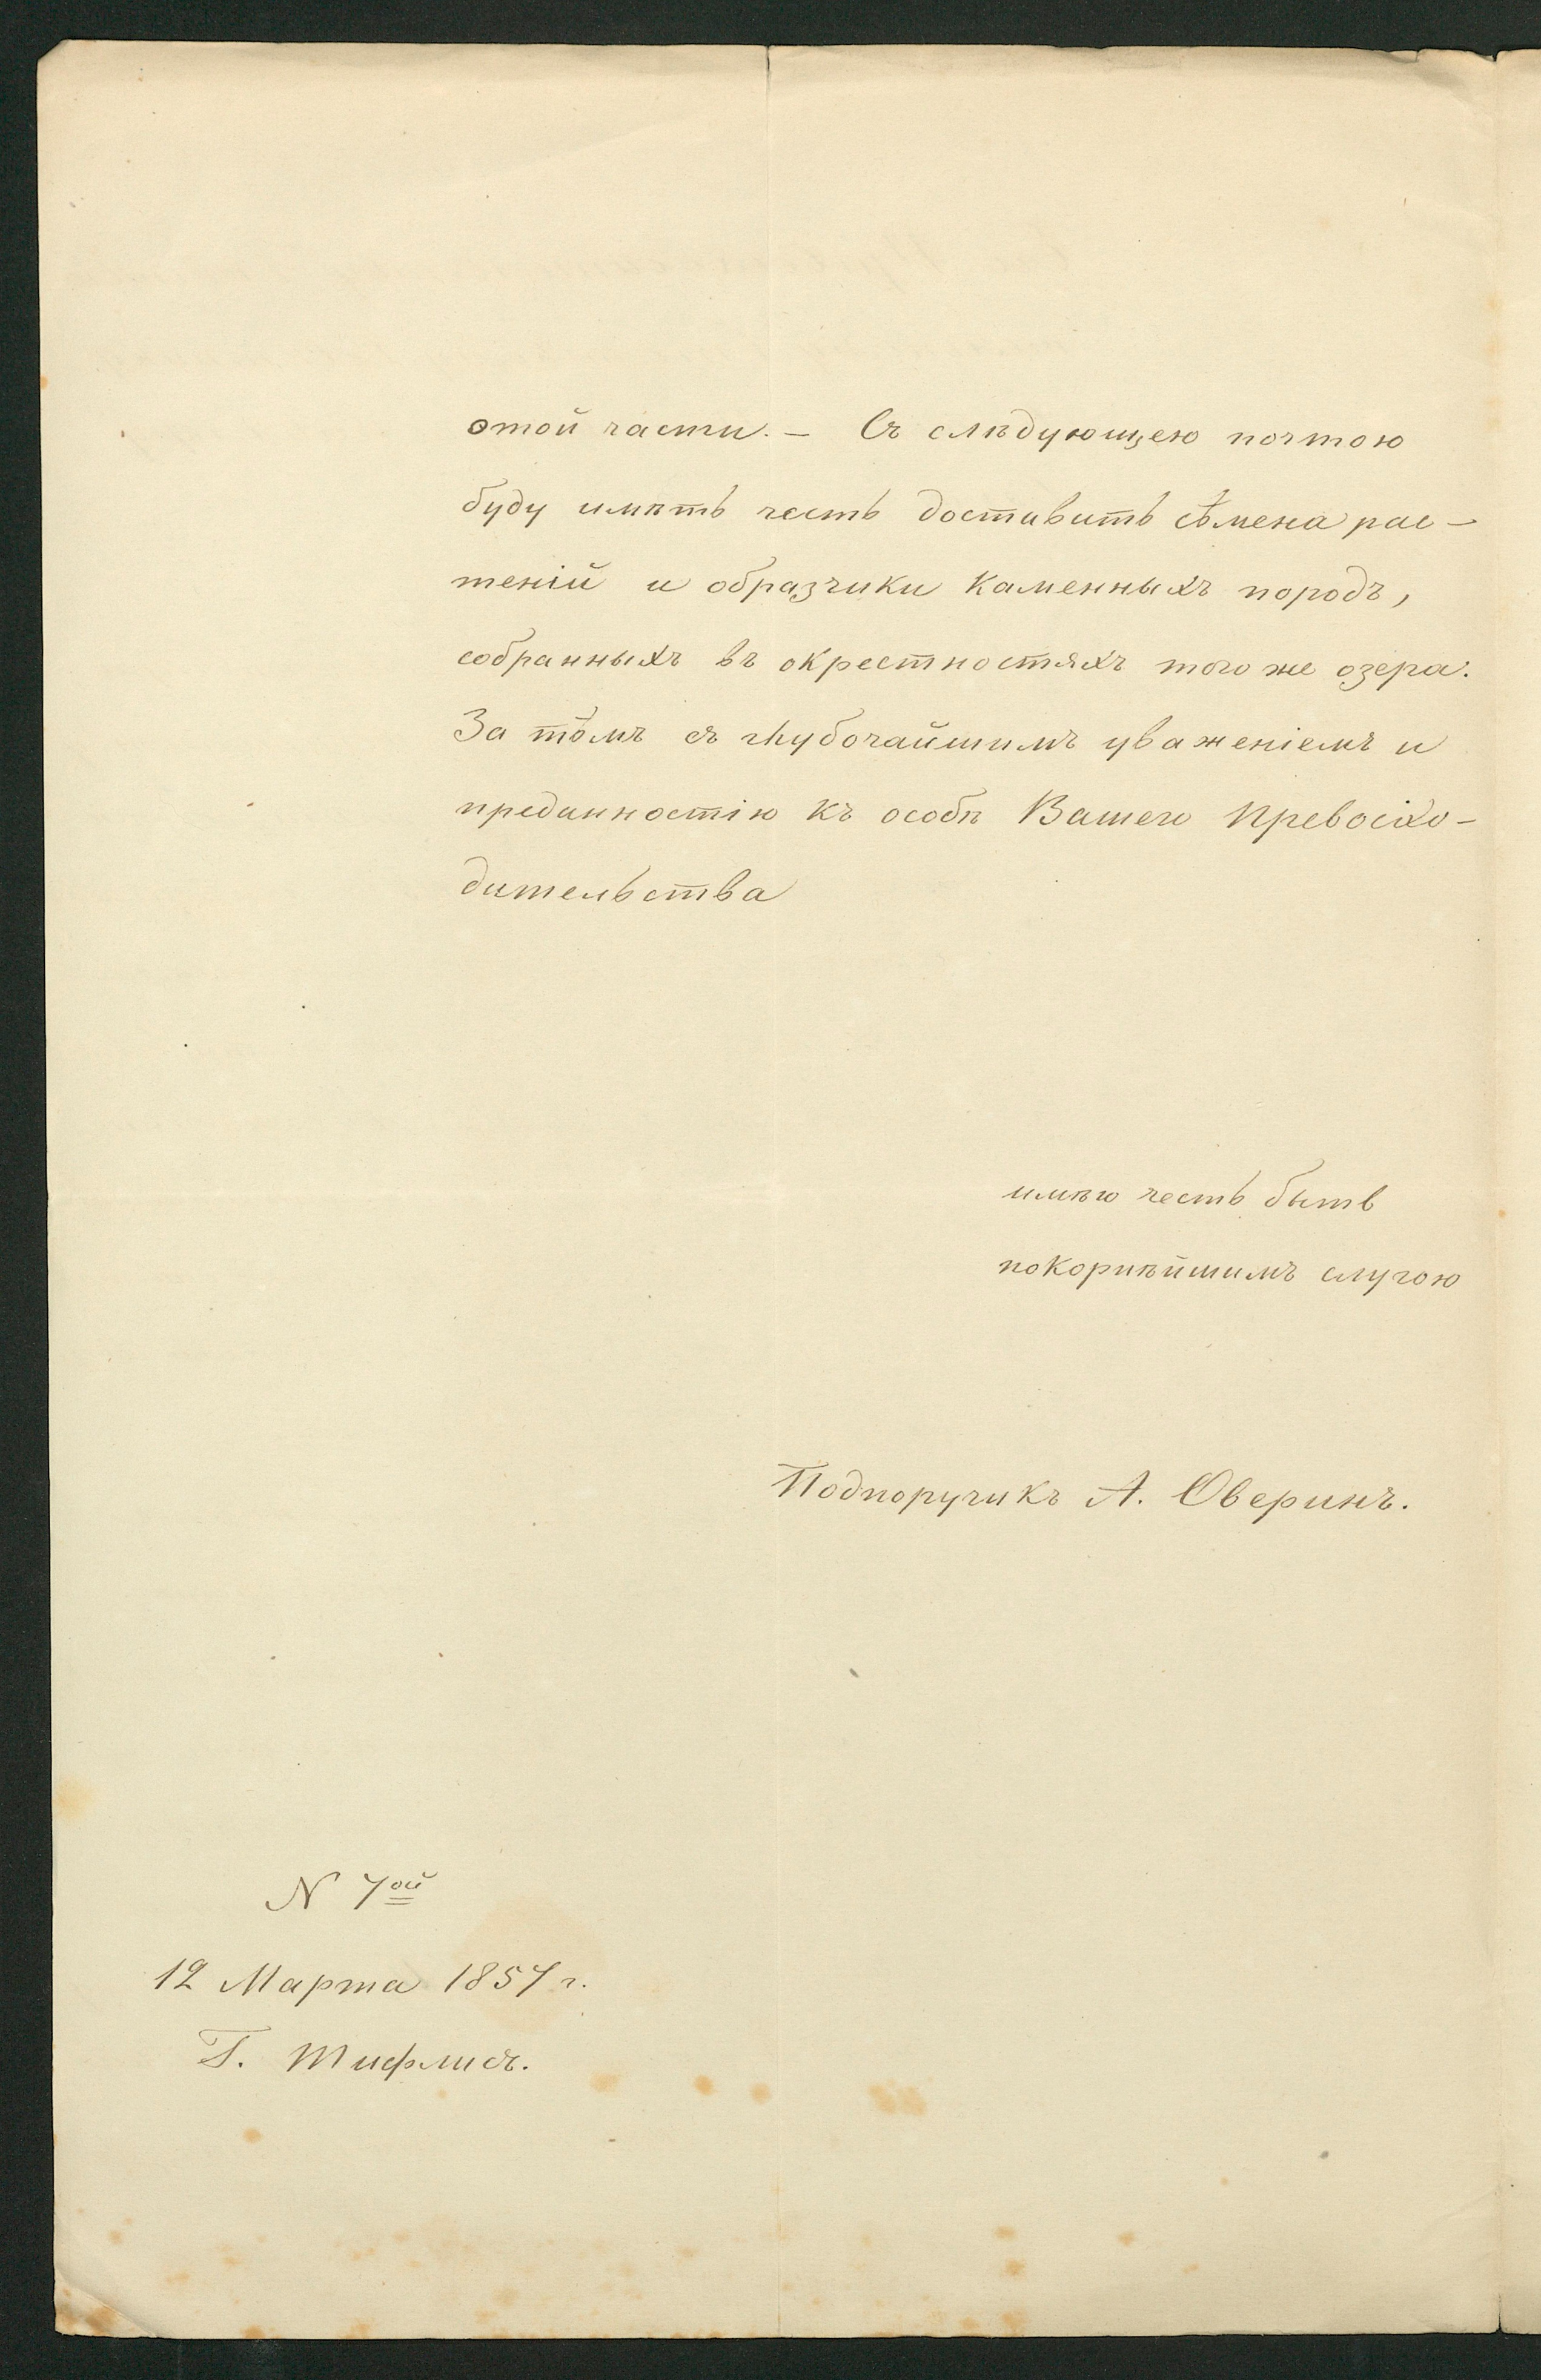 этой части. — Съ слѣдующею почтою
буду имѣть честь доставить сѣмена рас-
теній и образчики каменныхъ породъ,
собранныхъ въ окрестностяхъ того же озера.
За тѣмъ съ глубочайшимъ уваженіемъ и
преданностію къ особѣ Вашего Превосхо-
дительства
имѣю честь быть
покорнѣйшимъ слугою
Подпоручикъ А. Оверинъ.
N 7ой
12 Марта 1857 г.
Г. Тифлисъ.